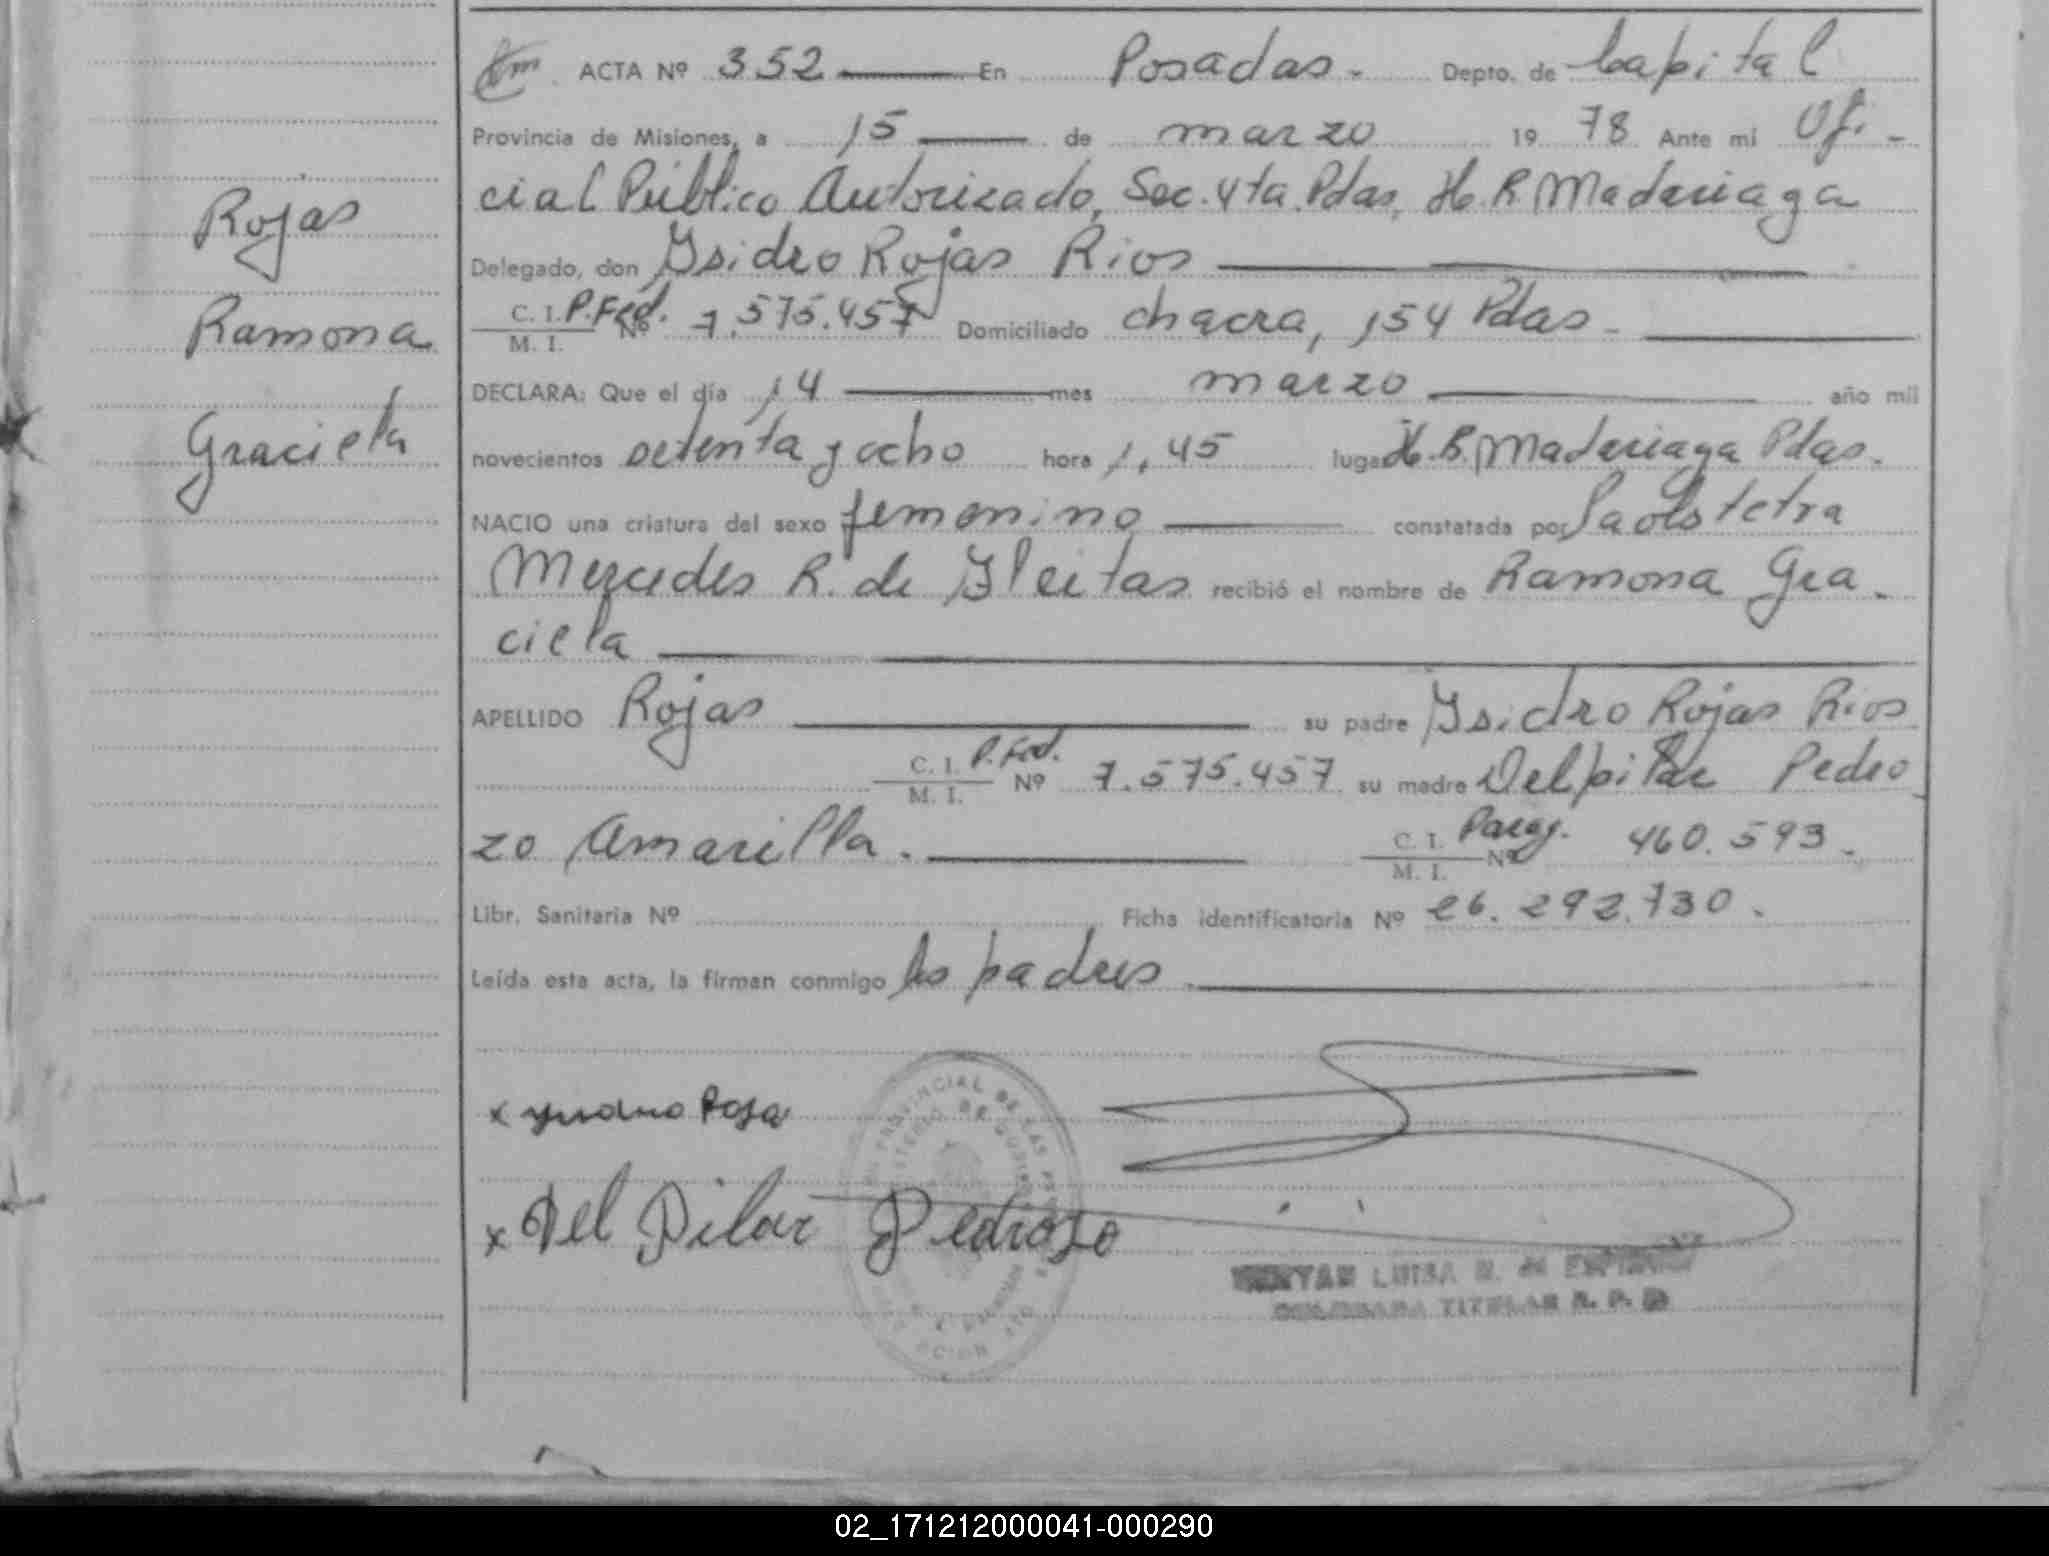 ACTA Nº 352 En Posadas. Depto. de Capital
Provincia de Misiones, a 15 de marzo 19 78 Ante mi Ofi-
cial Público Autorizado, Sec. 4ta. Pdas, H. R. Madariaga
Rojas
Delegado, don Ysidro Rojas Rios
Ramona
C. I. P. Fed. Nº 7.575.457 Domiciliado chacra, 154 Pdas-
M. I.
DECLARA: Que el día 14 mes marzo año mil
Graciela
novecientos setenta y ocho hora 1,45 lugar H. R. Madariaga Pdas.
NACIO una criatura del sexo femenino constatada por la obstetra
Mercedes R. de Fleitas recibió el nombre de Ramona Gra-
ciela
APELLIDO Rojas su padre Ysidro Rojas Rios
C. I. P. Fed. Nº 7.575.457 su madre Del pilar Pedro
M. I.
zo Amarilla. C. I. Parag. Nº 460.593.-
M. I.
Libr. Sanitaria Nº Ficha identificatoria Nº 26.292.730.
Leída esta acta, la firman conmigo los padres
x Ysidro Roja
x Del Pilar Pedrozo
LUISA
TITULAR R. P.
02_171212000041-000290